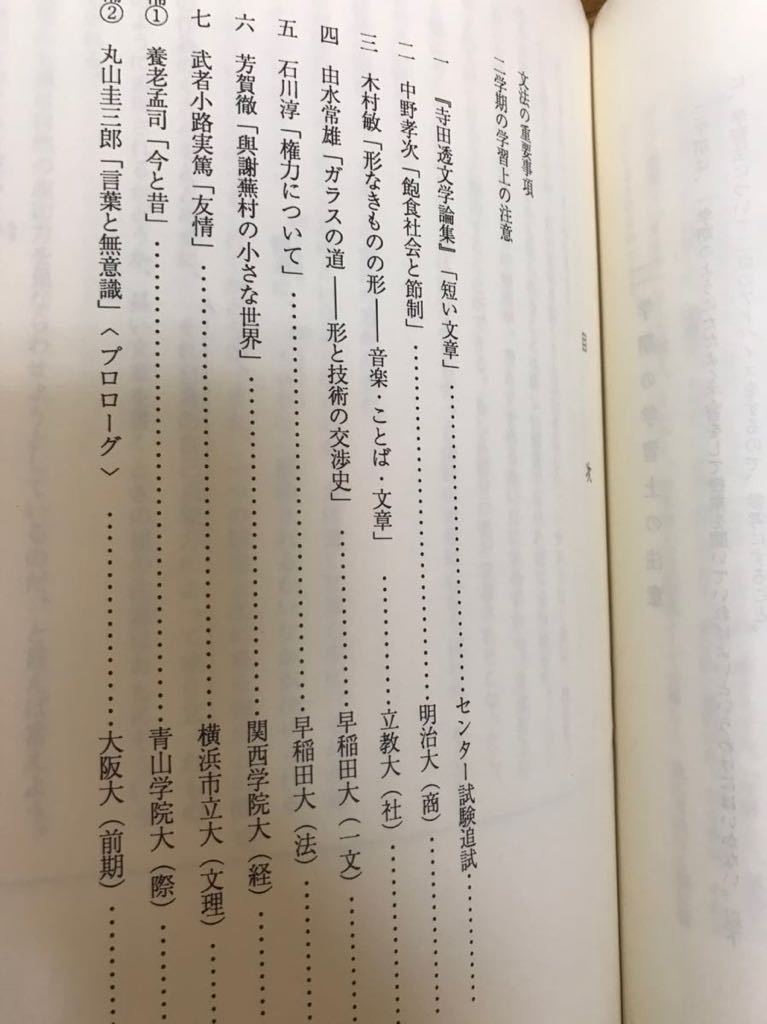 目次
文法の重要事項
二学期の学習上の注意
一 『寺田透文学論集』「短い文章」……………………センター試験追試…………
二 中野孝次「飽食社会と節制」……………………明治大（商）…………
三 木村敏「形なきものの形――音楽・ことば・文章」…………立教大（社）…………
四 由水常雄「ガラスの道――形と技術の交渉史」…………早稲田大（一文）…………
五 石川淳「権力について」……………………早稲田大（法）…………
六 芳賀徹「與謝蕪村の小さな世界」……………………関西学院大（経）…………
七 武者小路実篤「友情」……………………横浜市立大（文理）…………
補① 養老孟司「今と昔」……………………青山学院大（際）…………
補② 丸山圭三郎「言葉と無意識」〈プロローグ〉…………大阪大（前期）…………